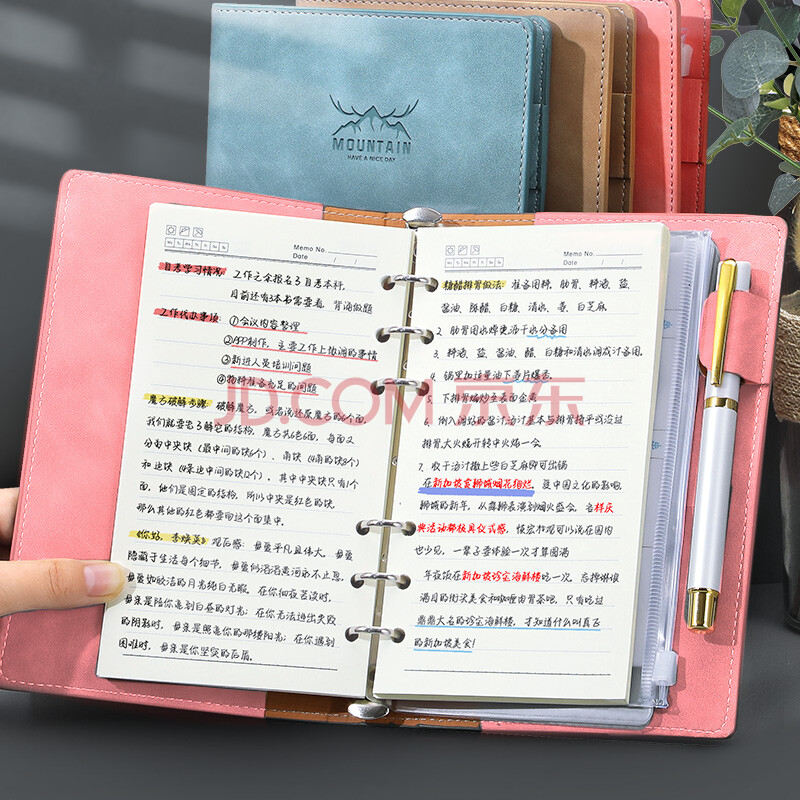 MOUNTAIN
HAVE A NICE DAY
Memo No.
Date / /
自考学习情况: 工作之余报名了自考本科,
目前还有3本书需要看, 背诵做题
工作代办事项: ①会议内容整理
②APP制作, 主要工作上协调的事情
③新进人员培训问题
④物种准备充足的问题
魔方破解步骤: 破解魔方, 或者说还原魔方的6个面,
我们就要先了解它的结构, 魔方共6色6面, 每面又
分为中央块 (最中间的块6个)、角块 (4角的块8个)
和边块 (4条边中间的块12个)。其中中央块只有1个
面, 他们是固定的结构, 所以中央是红色的块,
那么其他的红色都要向这个面集中。
《你好, 李焕英》观后感: 母爱平凡且伟大, 母爱
隐藏于生活每个细节, 母爱似滔滔黄河永不止息,
母爱如皎洁的月光纯白无暇, 在你仰夜苦读时,
母亲是陪你亮到白昼的灯光; 在你无法逃出失败
的阴影时, 母亲是照亮你的那缕阳光; 在你遇到
困难时, 母亲是你坚实的后盾。
Memo No.
Date / /
糖醋排骨做法: 准备用料, 肋骨, 料酒, 盐,
酱油, 陈醋, 白糖, 清水, 姜, 白芝麻
2. 肋骨用水焯熟沥干水分备用
3. 料酒、盐、酱油、醋、白糖和清水调成汁备用
4. 锅里加适量油下姜片爆香
5. 下排骨煸炒至表面金黄
6. 倒入调好的酱汁汤汁基本与排骨持平或没过
排骨大火烧开转中火焖一会
7. 收干汤汁撒上些白芝麻即可出锅
在新加坡赏狮城烟花绚烂, 受中国文化的影响
狮城的新年, 从舞狮表演到烟火盛会, 各样庆
典活动都极具仪式感, 候宏彬观可以说在国内
也少见, 一辈子要体验一次才算圆满
年夜饭在新加坡珍宝海鲜楼吃一次, 忘掉讲谁
满目的街头美食和咖喱肉骨茶吧, 只有吃过
鼎鼎大名的珍宝海鲜楼, 才知道什么叫真正
的新加坡美食!
JD.COM 京东